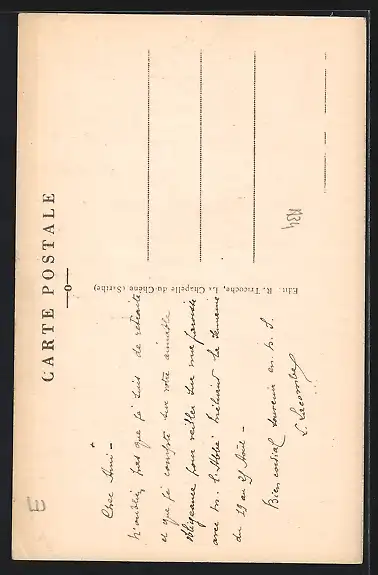 CARTE POSTALE
Edit. R. Tricoche, La Chapelle du Chêne (Sarthe)
Cher Ami -
N'oubliez pas que je suis de retraite
et que je compte sur votre aimable
obligeance pour veiller sur ma paroisse
avec M. l'Abbé la semaine
du 19 au 25 Août -
Bien cordial souvenir en N. S.
L. Lacombe
E